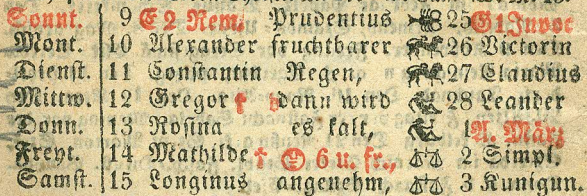 Sonnt. 9 E 2 Rem. Prudentius 25 G1Invoc
Mont. 10 Alexander fruchtbarer 26 Victorin
Dienst. 11 Constantin Regen, 27 Claudius
Mittw. 12 Gregor † dann wird 28 Leander
Donn. 13 Rosina es kalt, 1 A. März
Freyt. 14 Mathilde † 6 u. fr., 2 Simpl.
Samst. 15 Longinus angenehm, 3 Kunigun